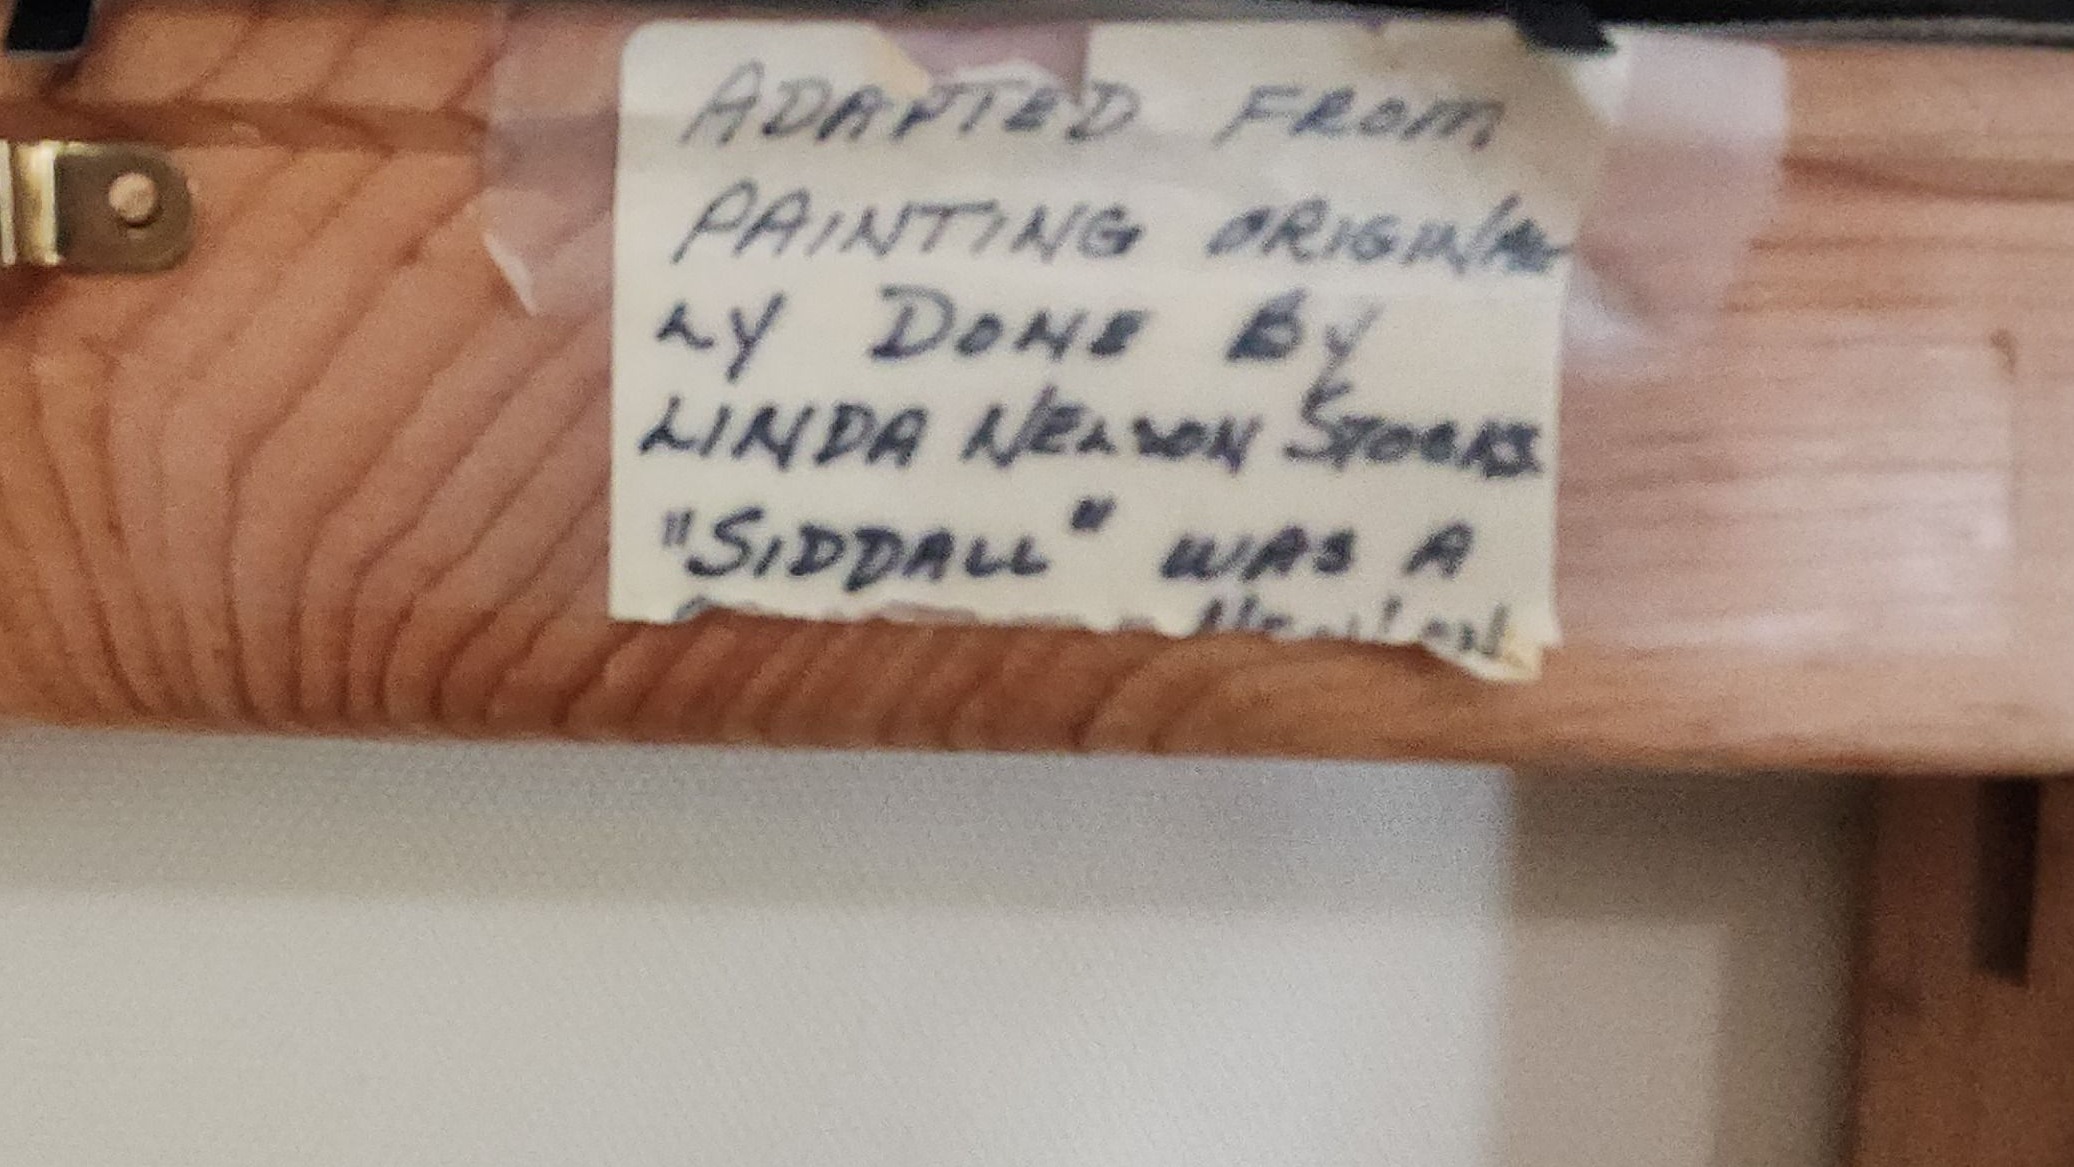 ADAPTED FROM
PAINTING ORIGINAL
LY DONE BY
LINDA NELSON STOCKS
"SIDDALL" WAS A